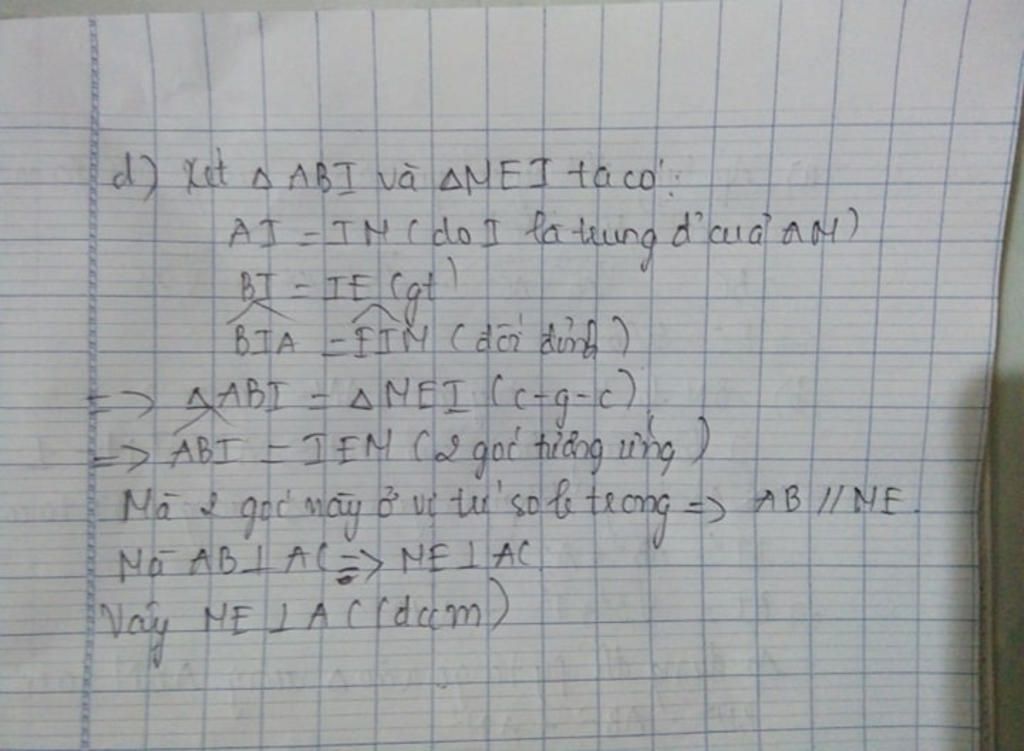 d) Xét △ ABI và △MEI ta có:
AI = IM (do I là trung đ' của AM)
BI = IE (gt)
BIA = EIM (đối đỉnh)
=> △ABI = △MEI (c-g-c)
=> ABI = IEM (2 góc tương ứng)
Mà 2 góc này ở vị trí so le trong => AB // ME.
Mà AB ⊥ AC => ME ⊥ AC
Vậy ME ⊥ AC (đccm)